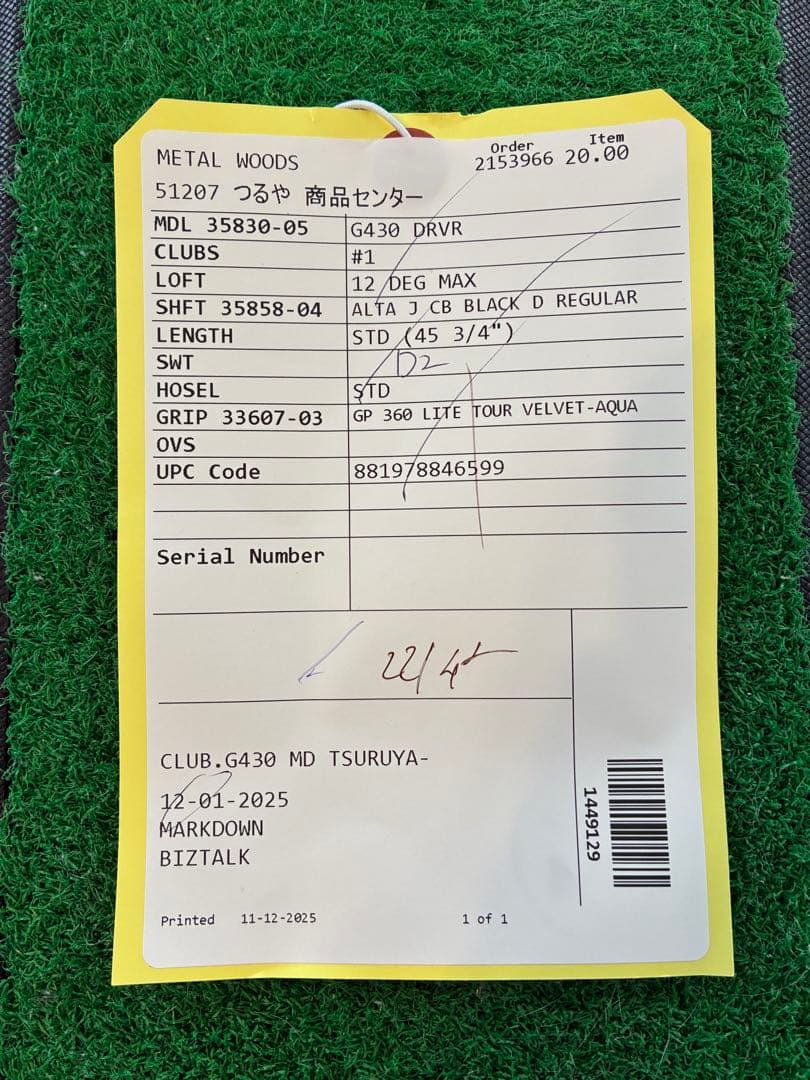 Order Item
METAL WOODS 2153966 20.00
51207 つるや 商品センター
MDL 35830-05 G430 DRVR
CLUBS #1
LOFT 12 DEG MAX
SHFT 35858-04 ALTA J CB BLACK D REGULAR
LENGTH STD (45 3/4")
SWT D2
HOSEL STD
GRIP 33607-03 GP 360 LITE TOUR VELVET-AQUA
OVS
UPC Code 881978846599
Serial Number
CLUB.G430 MD TSURUYA-
12-01-2025
MARKDOWN
BIZTALK
1449129
Printed 11-12-2025 1 of 1